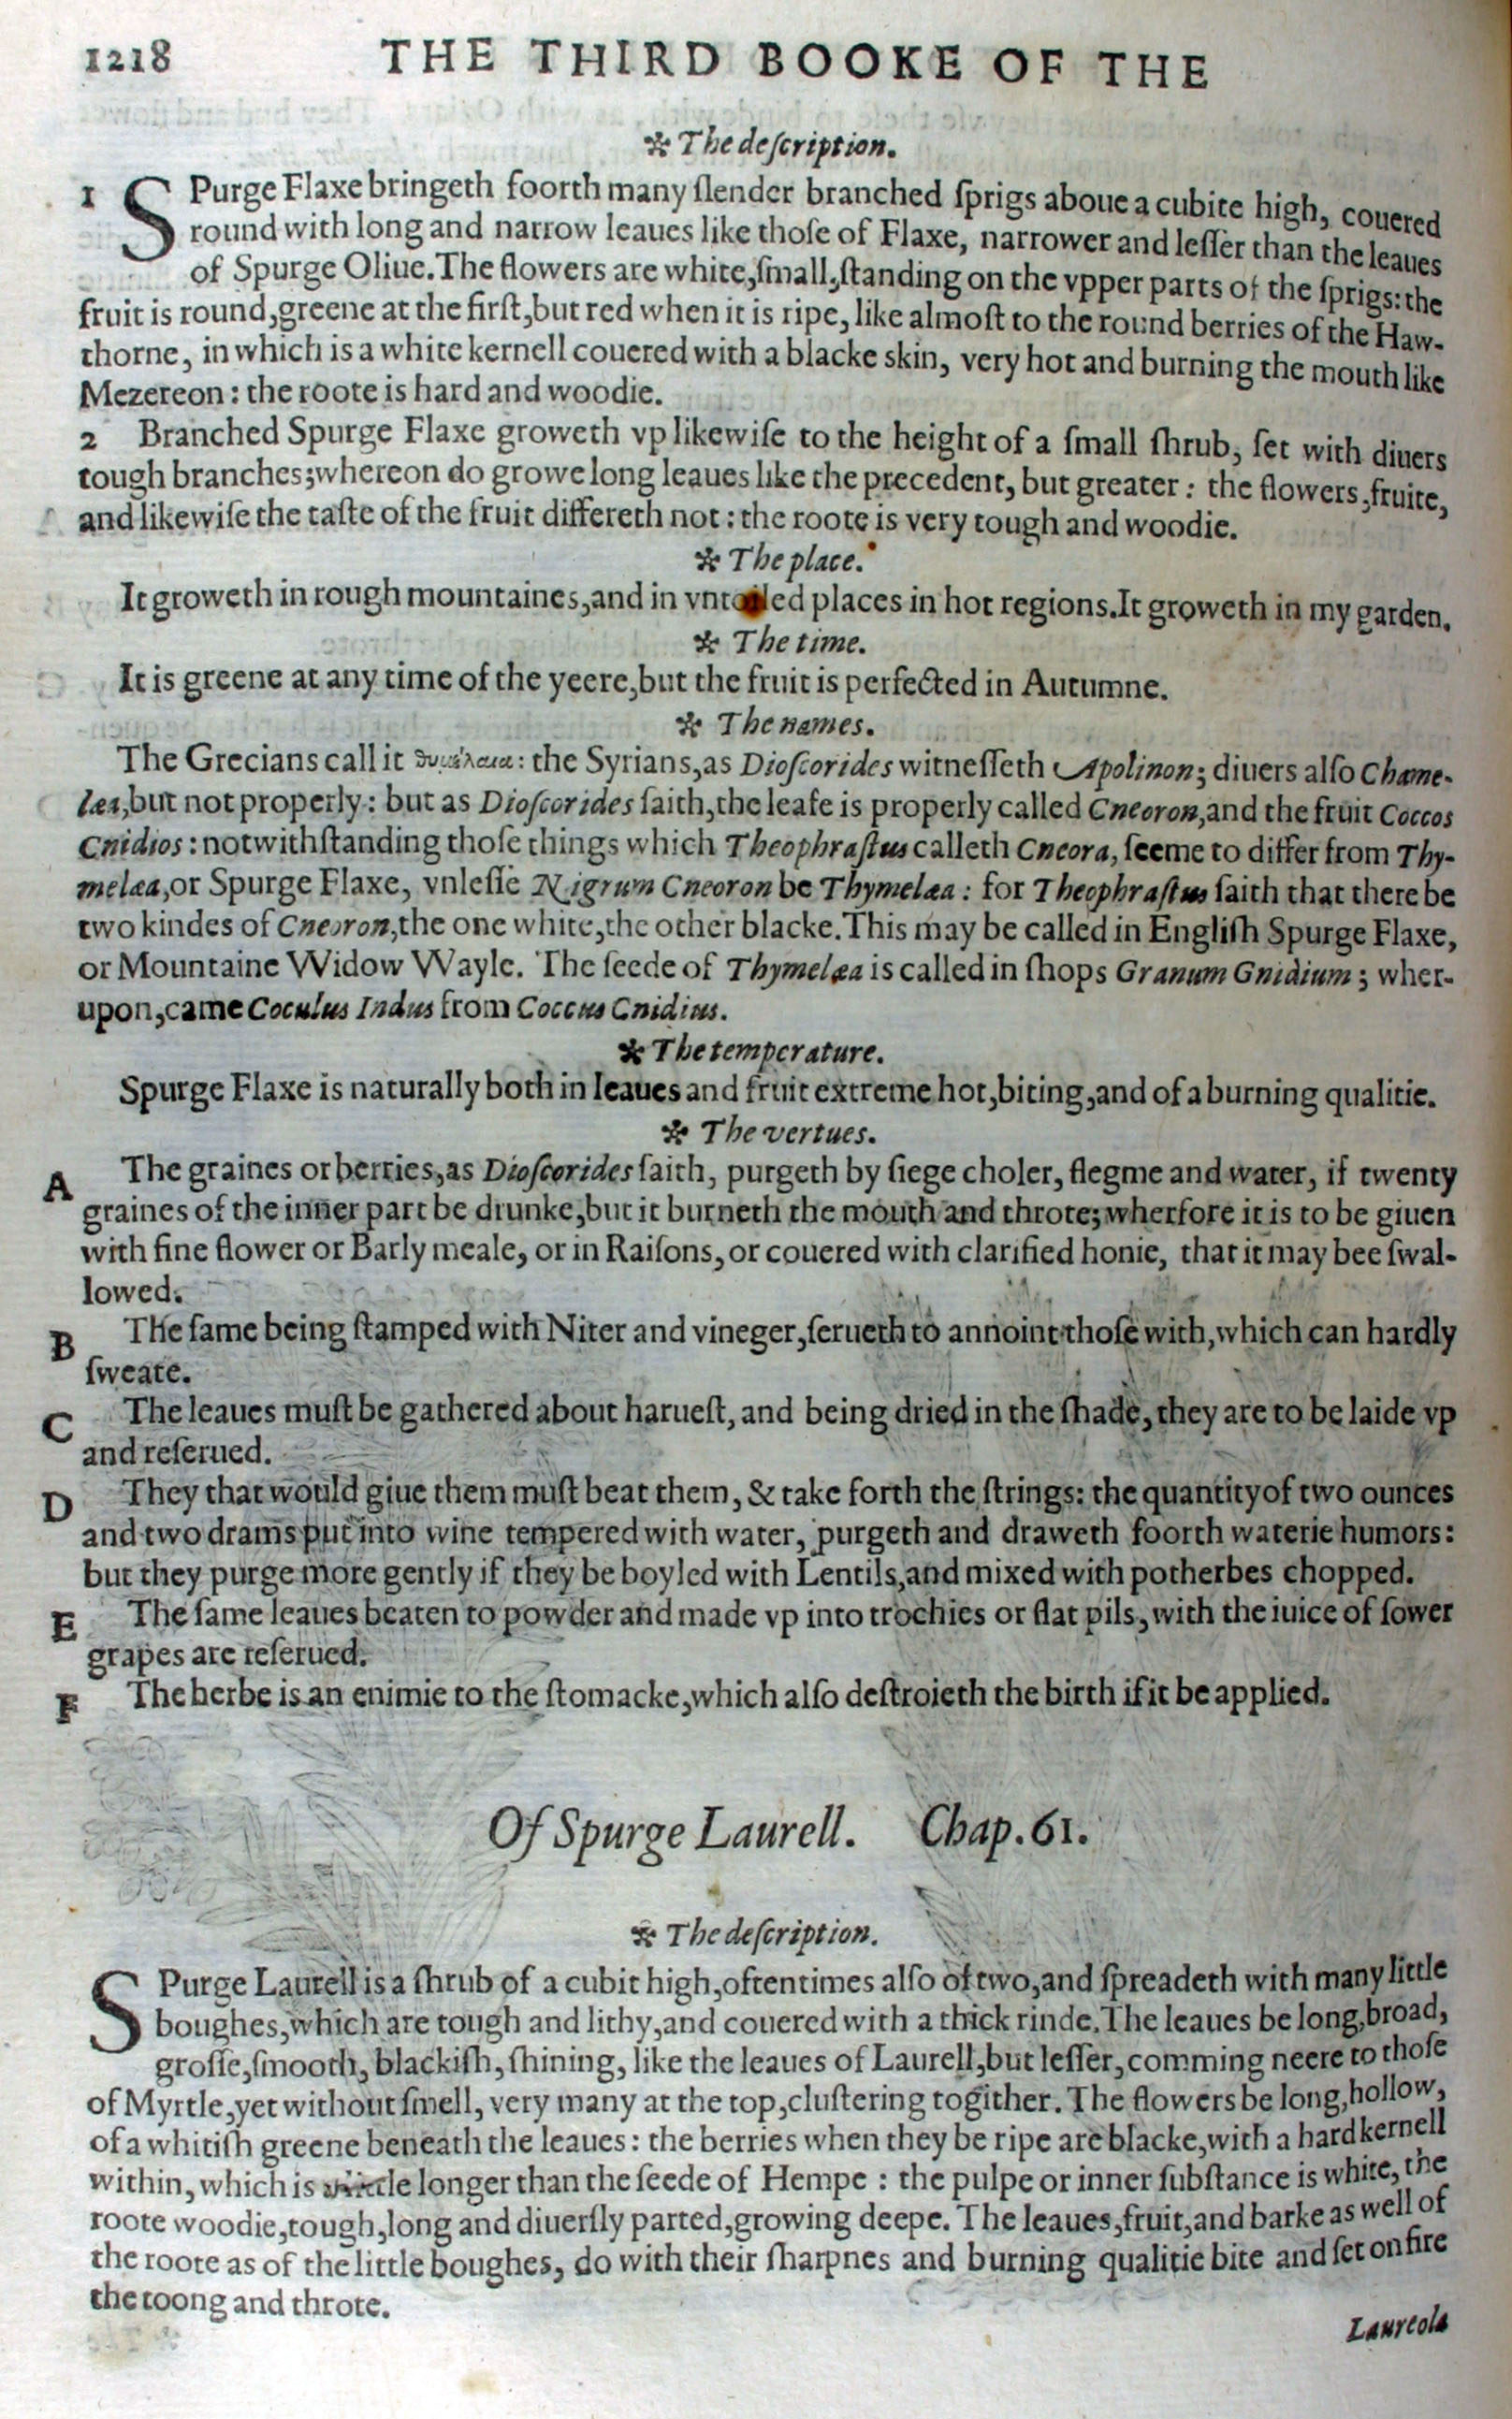 1218 THE THIRD BOOKE OF THE
✲ The deſcription.
1 SPurge Flaxe bringeth foorth many ſlender branched ſprigs aboue a cubite high, couered
round with long and narrow leaues like thoſe of Flaxe, narrower and leſſer than the leaues
of Spurge Oliue. The flowers are white, ſmall, ſtanding on the vpper parts of the ſprigs: the
fruit is round, greene at the firſt, but red when it is ripe, like almoſt to the round berries of the Haw-
thorne, in which is a white kernell couered with a blacke skin, very hot and burning the mouth like
Mezereon: the roote is hard and woodie.
2 Branched Spurge Flaxe groweth vp likewiſe to the height of a ſmall ſhrub, ſet with diuers
tough branches; whereon do growe long leaues like the precedent, but greater: the flowers, fruite,
and likewiſe the taſte of the fruit differeth not: the roote is very tough and woodie.
✲ The place.
It groweth in rough mountaines, and in places in hot regions. It groweth in my garden.
✲ The time.
It is greene at any time of the yeere, but the fruit is perfected in Autumne.
✲ The names.
The Grecians call it θυμέλαια: the Syrians, as Dioſcorides witneſſeth Apolinon; diuers alſo Chame-
læa, but not properly: but as Dioſcorides ſaith, the leafe is properly called Cneoron, and the fruit Coccos
Cnidios: notwithſtanding thoſe things which Theophraſtus calleth Cneora, ſeeme to differ from Thy-
melæa, or Spurge Flaxe, vnleſſe Nigrum Cneoron be Thymelæa: for Theophraſtus ſaith that there be
two kindes of Cneoron, the one white, the other blacke. This may be called in Engliſh Spurge Flaxe,
or Mountaine Widow Wayle. The ſeede of Thymelæa is called in ſhops Granum Gnidium; wher-
upon, came Coculus Indus from Coccus Cnidius.
✲ The temperature.
Spurge Flaxe is naturally both in leaues and fruit extreme hot, biting, and of a burning qualitie.
✲ The vertues.
A The graines or berries, as Dioſcorides ſaith, purgeth by ſiege choler, flegme and water, if twenty
graines of the inner part be drunke, but it burneth the mouth and throte; wherfore it is to be giuen
with fine flower or Barly meale, or in Raiſons, or couered with clarified honie, that it may bee ſwal-
lowed.
B The ſame being ſtamped with Niter and vineger, ſerueth to annoint thoſe with, which can hardly
ſweate.
C The leaues muſt be gathered about harueſt, and being dried in the ſhade, they are to be laide vp
and reſerued.
D They that would giue them muſt beat them, & take forth the ſtrings: the quantity of two ounces
and two drams put into wine tempered with water, purgeth and draweth foorth waterie humors:
but they purge more gently if they be boyled with Lentils, and mixed with potherbes chopped.
E The ſame leaues beaten to powder and made vp into trochies or flat pils, with the iuice of ſower
grapes are reſerued.
F The herbe is an enimie to the ſtomacke, which alſo deſtroieth the birth if it be applied.
Of Spurge Laurell. Chap. 61.
✲ The deſcription.
SPurge Laurell is a ſhrub of a cubit high, oftentimes alſo of two, and ſpreadeth with many little
boughes, which are tough and lithy, and couered with a thick rinde. The leaues be long, broad,
groſſe, ſmooth, blackiſh, ſhining, like the leaues of Laurell, but leſſer, comming neere to thoſe
of Myrtle, yet without ſmell, very many at the top, cluſtering togither. The flowers be long, hollow,
of a whitiſh greene beneath the leaues: the berries when they be ripe are blacke, with a hard kernell
within, which is longer than the ſeede of Hempe: the pulpe or inner ſubſtance is white, the
roote woodie, tough, long and diuerſly parted, growing deepe. The leaues, fruit, and barke as well of
the roote as of the little boughes, do with their ſharpnes and burning qualitie bite and ſet on fire
the toong and throte.
Laureola